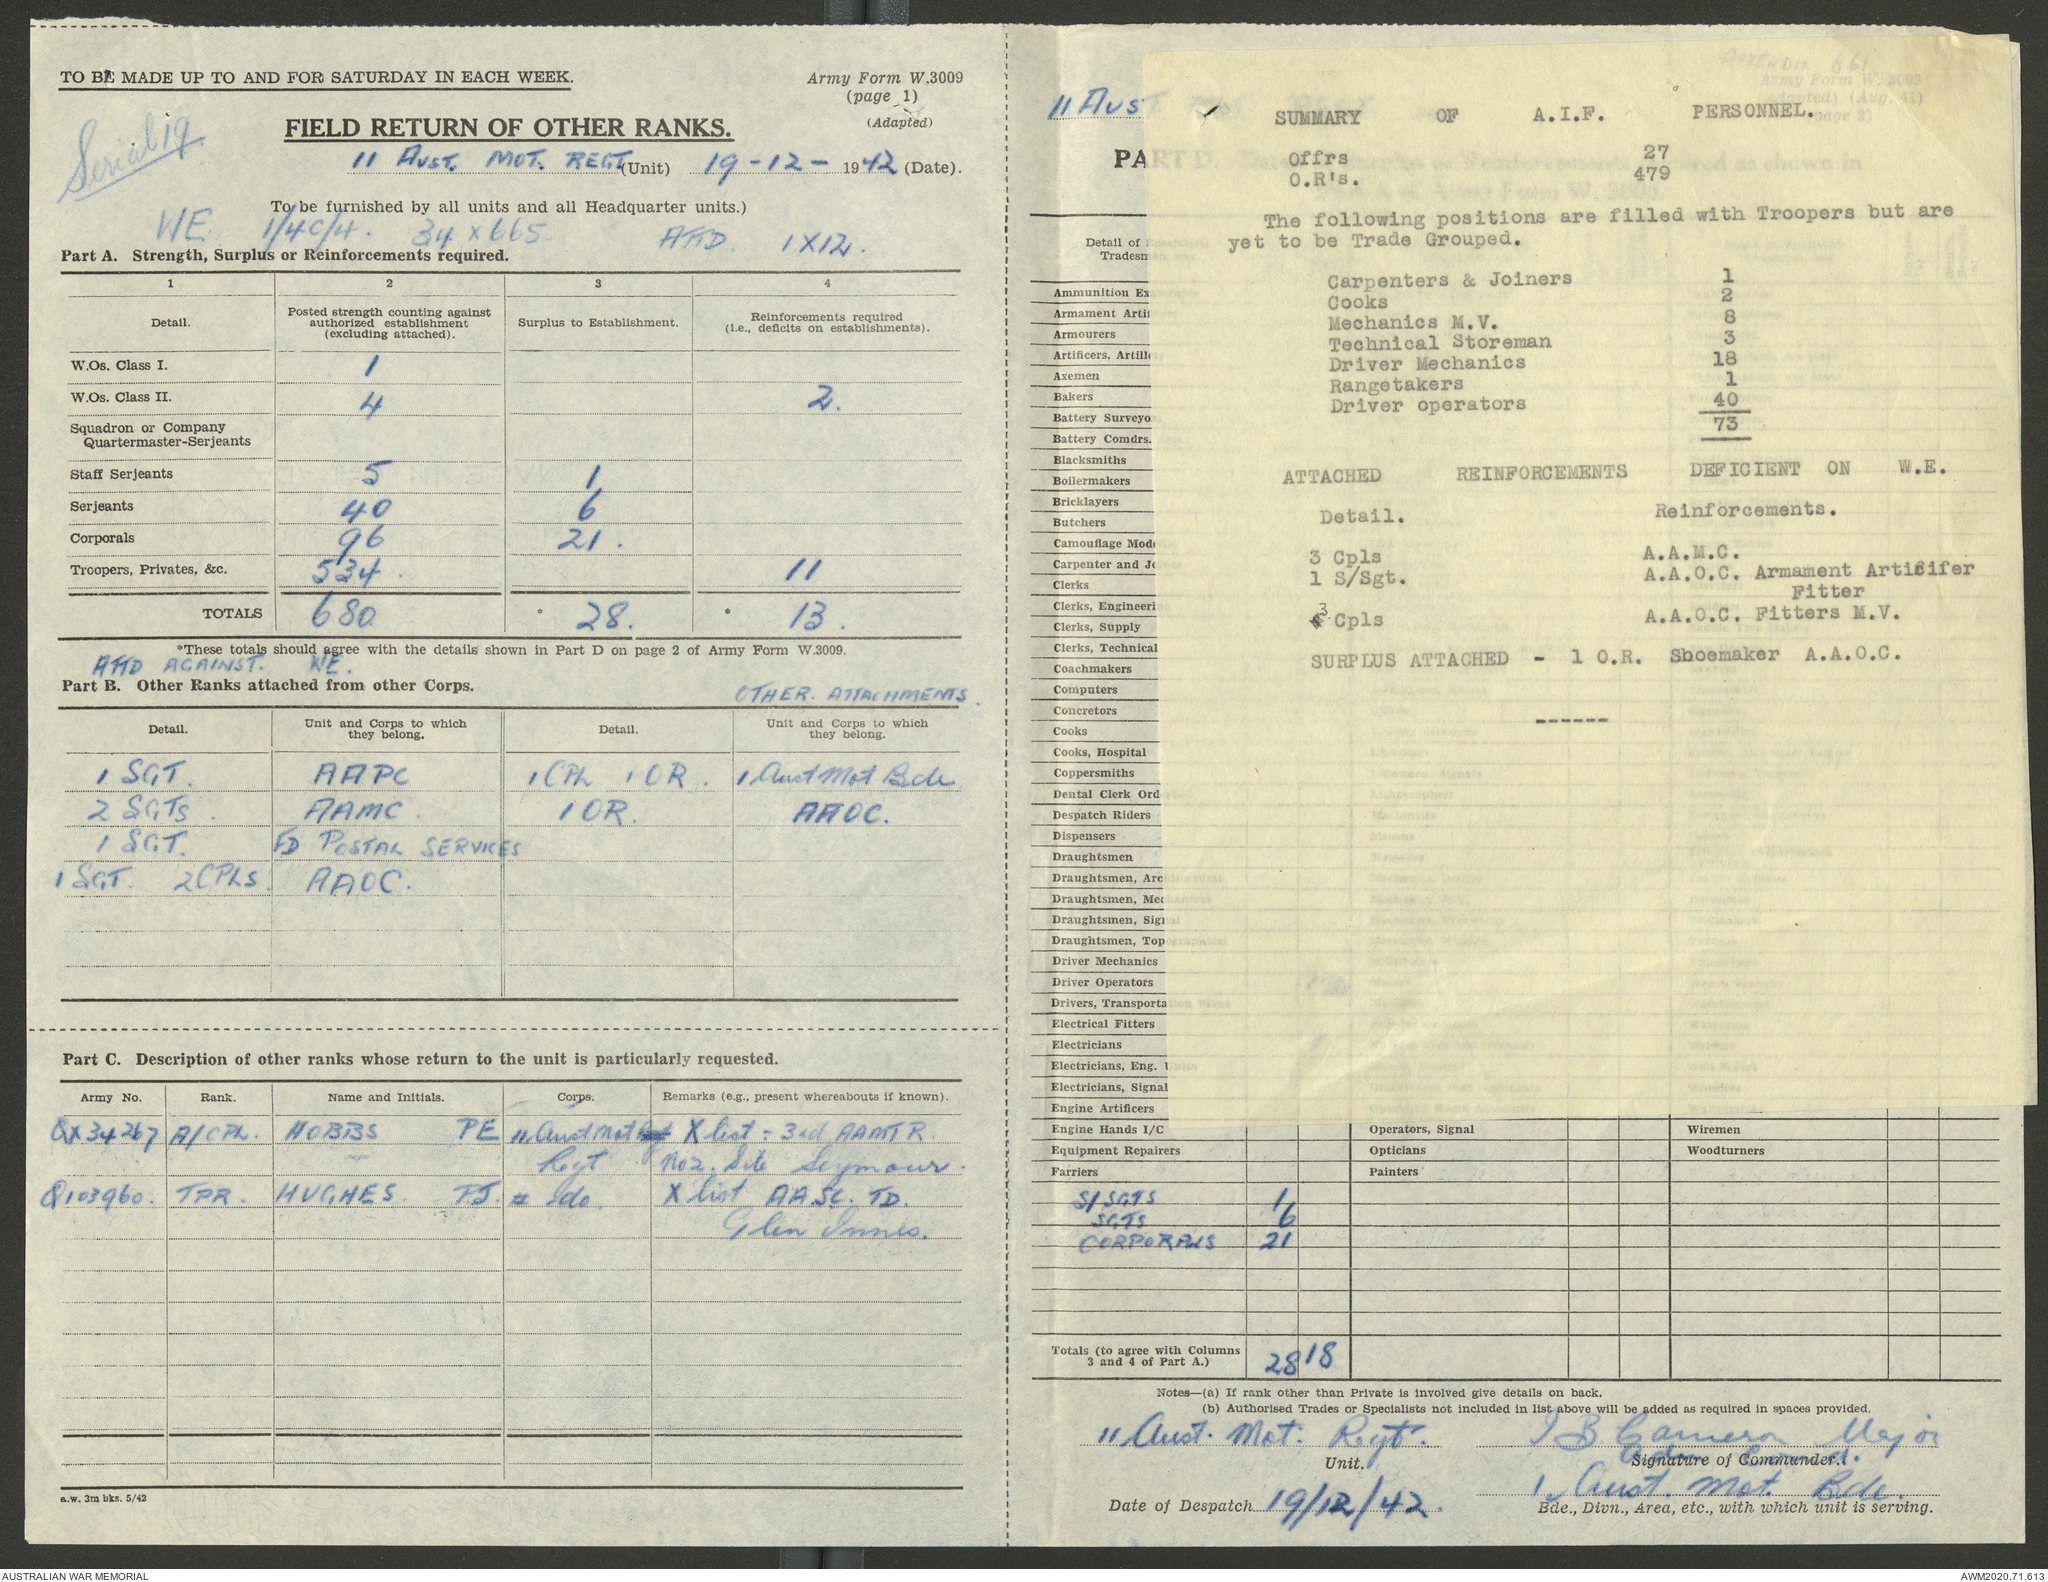 TO BE MADE UP TO AND FOR SATURDAY IN EACH WEEK.
Army Form W.3009
(page 1)
(Adapted)
Serial 19
FIELD RETURN OF OTHER RANKS.
11 AUST. MOT. REGT (Unit) 19-12-1942 (Date).
To be furnished by all units and all Headquarter units.)
WE 1/4C/4. 34 X 665 ATTD. 1X12.
Part A. Strength, Surplus or Reinforcements required.
1 2 3 4
Detail. Posted strength counting against authorized establishment (excluding attached). Surplus to Establishment. Reinforcements required (i.e., deficits on establishments).
W.Os. Class I. 1
W.Os. Class II. 4 2.
Squadron or Company
Quartermaster-Serjeants
Staff Serjeants 5 1
Serjeants 40 6
Corporals 96 21.
Troopers, Privates, &c. 534. 11
TOTALS 680 * 28. * 13.
*These totals should agree with the details shown in Part D on page 2 of Army Form W.3009.
ATTD AGAINST. WE.
Part B. Other Ranks attached from other Corps. OTHER. ATTACHMENTS.
Detail. Unit and Corps to which they belong. Detail. Unit and Corps to which they belong.
1 SGT. AAPC 1 CPL 1 OR. 1 Aust Mot Bde
2 SGTS. AAMC. 1 OR. AAOC.
1 SGT. FD POSTAL SERVICES
1 SGT. 2 CPLS. AAOC.
Part C. Description of other ranks whose return to the unit is particularly requested.
Army No. Rank. Name and Initials. Corps. Remarks (e.g., present whereabouts if known).
QX34267 A/CPL. HOBBS PE 11 Aust Mot X list - 3rd AAMTR.
Regt No2. Site Seymour.
Q103960. TPR. HUGHES. PJ do. X list AASC. TD.
Glen Innes.
a.w. 3m bks. 5/42
11 AUS
PA
Detail of
Tradesm
Ammunition Ex
Armament Arti
Armourers
Artificers, Artill
Axemen
Bakers
Battery Surveyo
Battery Comdrs.
Blacksmiths
Boilermakers
Bricklayers
Butchers
Camouflage Mod
Carpenter and Jo
Clerks
Clerks, Engineeri
Clerks, Supply
Clerks, Technical
Coachmakers
Computers
Concretors
Cooks
Cooks, Hospital
Coppersmiths
Dental Clerk Ord
Despatch Riders
Dispensers
Draughtsmen
Draughtsmen, Arc
Draughtsmen, Mec
Draughtsmen, Sig
Draughtsmen, Top
Driver Mechanics
Driver Operators
Drivers, Transporta
Electrical Fitters
Electricians
Electricians, Eng.
Electricians, Signal
Engine Artificers
Engine Hands I/C Operators, Signal Wiremen
Equipment Repairers Opticians Woodturners
Farriers Painters
S/SGTS 1
SGTS 6
CORPORALS 21
Totals (to agree with Columns
3 and 4 of Part A.) 28 18
Notes—(a) If rank other than Private is involved give details on back.
(b) Authorised Trades or Specialists not included in list above will be added as required in spaces provided.
11 Aust. Mot. Regt. Unit.
Cameron Major
Signature of Commander.
1 Aust. Mot. Bde.
Date of Despatch 19/12/42. Bde., Divn., Area, etc., with which unit is serving.
APPENDIX
Army Form W. 3009
(adapted) (Aug. 41)
SUMMARY OF A.I.F. PERSONNEL.
Offrs 27
O.R's. 479
The following positions are filled with Troopers but are
yet to be Trade Grouped.
Carpenters & Joiners 1
Cooks 2
Mechanics M.V. 8
Technical Storeman 3
Driver Mechanics 18
Rangetakers 1
Driver operators 40
73
ATTACHED REINFORCEMENTS DEFICIENT ON W.E.
Detail. Reinforcements.
3 Cpls A.A.M.C.
1 S/Sgt. A.A.O.C. Armament Artificer
Fitter
3 Cpls A.A.O.C. Fitters M.V.
SURPLUS ATTACHED - 1 O.R. Shoemaker A.A.O.C.
------
AUSTRALIAN WAR MEMORIAL
AWM2020.71.613